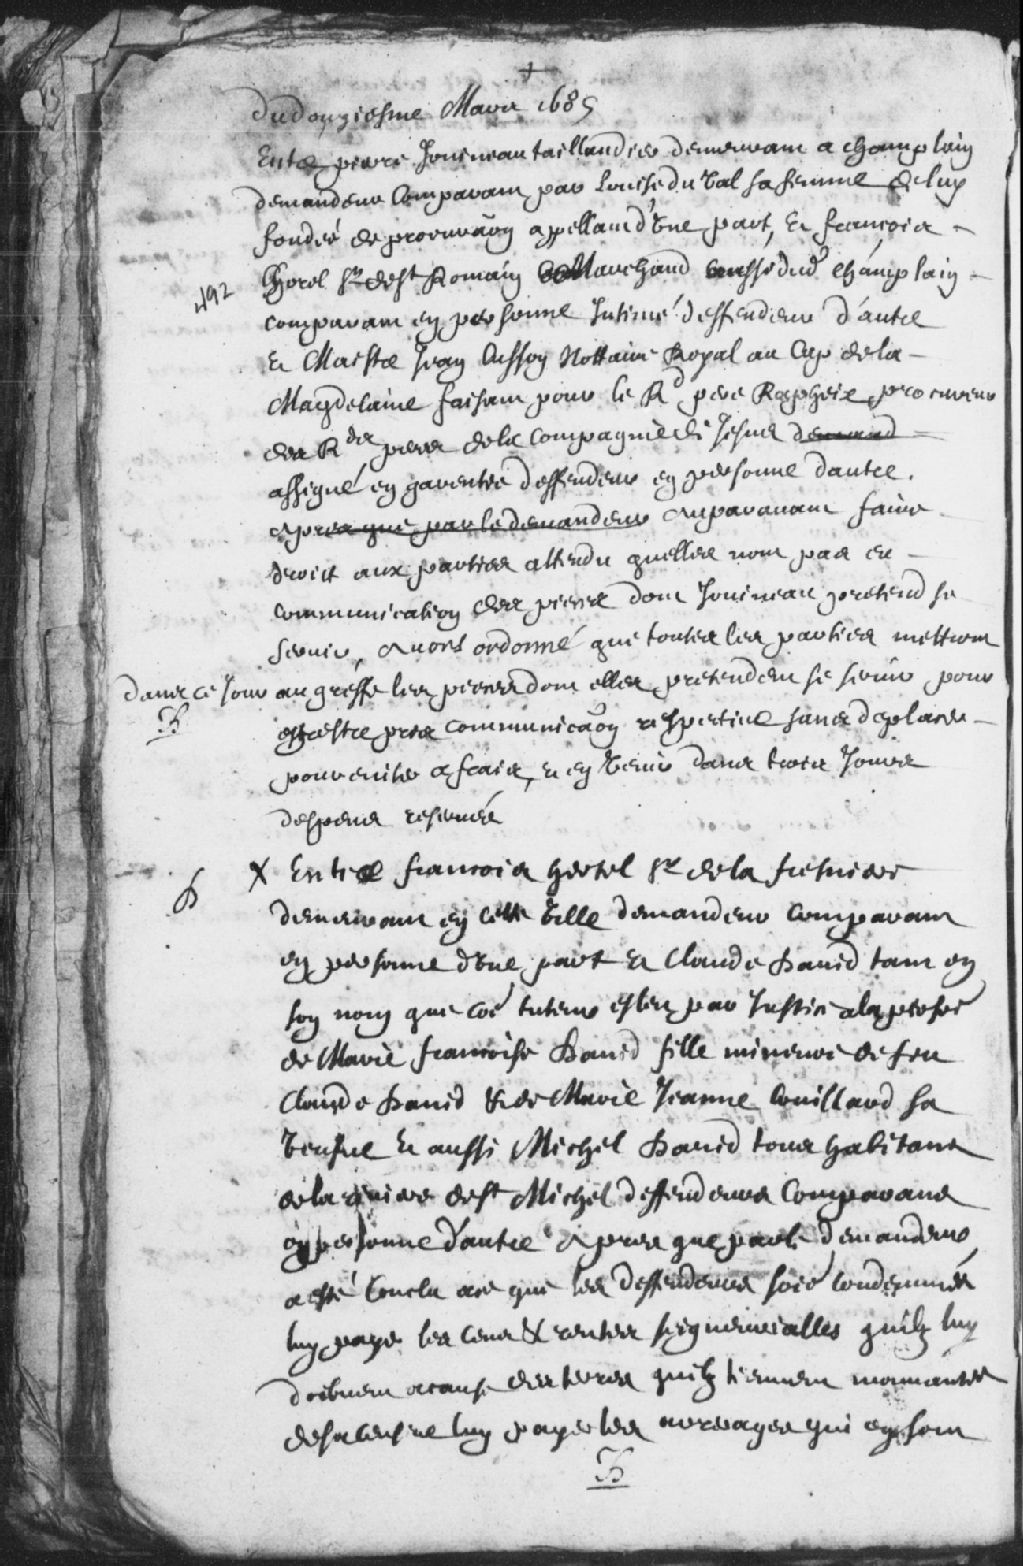 +
Du douziesme Mars 1685
Entre pierre Joüineau taillandier demeurant a champlain
demandeur Comparant par Louise du Val sa femme de luy
fondée de procuraõn appellant d'Une part, Et francois
492
Chorel Sr de St Romain Marchand dud champlain
comparant en personne Intimé deffendeur d'autre
Et Maistre Jean Cusson Nottaire Royal au Cap de la
Magdelaine faisant pour le Rd pere Rapheix procureur
des Rds peres de la Compagnie de Jesus demand
assigné en garentie deffendeur en personne dautre.
Apres que par le demandeur Auparavant faire
droict aux parties attendu quelles nont pas eu
communication des pieces dont Joüineau pretend se
servir, Avons ordonné que toutes les parties mettront
dans ce Jour au greffe les pieces dont elles pretendent se servir pour
estre pris communicaõn respective sans deplacer
pour eviter a frais, et en Venir dans trois Jours
despens reservés
X Entre francois hertel Sr de la fresniere
demeurant en cette Ville demandeur comparant
en personne d'Une part Et Claude David tant en
son nom que coe tuteur esleu par Justice a la persoe
de Marie francoise David fille mineure de feu
Claude David & de Marie Jeanne Couillard sa
Veufve Et aussi Michel David tous habitans
de la riviere de St Michel deffendeurs Comparans
en personne d'autre Apres que par le demandeur
a esté Conclu a ce que les deffendeurs soiẽt condemnés
luy payer les Cens & rentes seigneurialles quilz luy
doibvent a cause des terres quilz tiennent mouvantes
de sa Censive luy payer les arrerages qui en sont